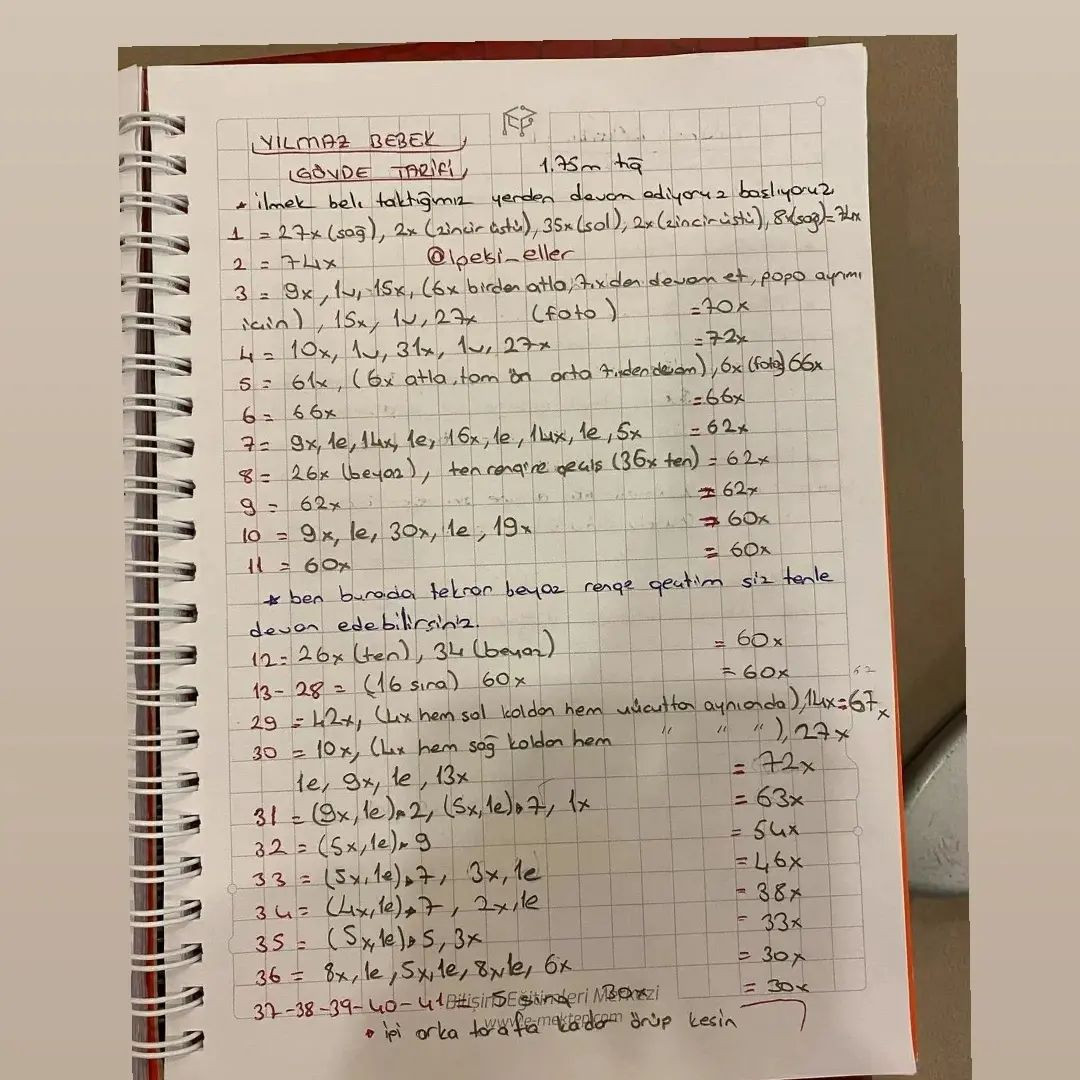 YILMAZ BEBEK
GÖVDE TARİFİ 1.75m tığ
* ilmek beli taktığımız yerden devam ediyoruz başlıyoruz
1 = 27x (sağ), 2x (zincir üstü), 35x (sol), 2x (zincir üstü), 8x (sağ) = 74x
2 = 74x @ipeksi_eller
3 = 9x, 1v, 15x, (6x birden atla, 7.x'den devam et, popo ayrımı
için), 15x, 1v, 27x (foto) = 70x
4 = 10x, 1v, 31x, 1v, 27x = 72x
5 = 61x, (6x atla, tam ön orta 7.den devam), 6x (foto) 66x
6 = 66x = 66x
7 = 9x, 1e, 14x, 1e, 16x, 1e, 14x, 1e, 5x = 62x
8 = 26x (beyaz), ten rengine geçiş (36x ten) = 62x
9 = 62x = 62x
10 = 9x, 1e, 30x, 1e, 19x = 60x
11 = 60x = 60x
* ben burada tekrar beyaz renge geçtim siz tenle
devam edebilirsiniz.
12 = 26x (ten), 34 (beyaz) = 60x
13 - 28 = (16 sıra) 60x = 60x
62
29 = 42x, (4x hem sol koldan hem vücuttan aynı anda), 14x = 67x
30 = 10x, (4x hem sağ koldan hem " " " ), 27x
1e, 9x, 1e, 13x = 72x
31 = (9x, 1e) * 2, (5x, 1e) * 7, 1x = 63x
32 = (5x, 1e) * 9 = 54x
33 = (5x, 1e) * 7, 3x, 1e = 46x
34 = (4x, 1e) * 7, 2x, 1e = 38x
35 = (5x, 1e) * 5, 3x = 33x
36 = 8x, 1e, 5x, 1e, 8x, 1e, 6x = 30x
37-38-39-40-41 = 5 sıra 30x = 30x
Bilişim Eğitimleri Merkezi
• ipi arka tarafa kadar örüp kesin